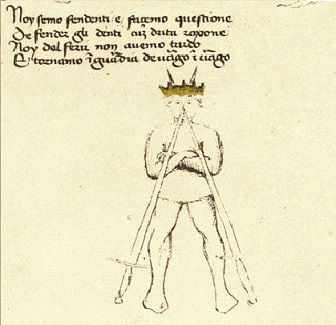 Noy semo fendenti e façemo questione
De fender gli denti cũ drita raxone
Noy del ferir non avemo tardo
E tornamo ĩ guardia de vargo ĩ vargo